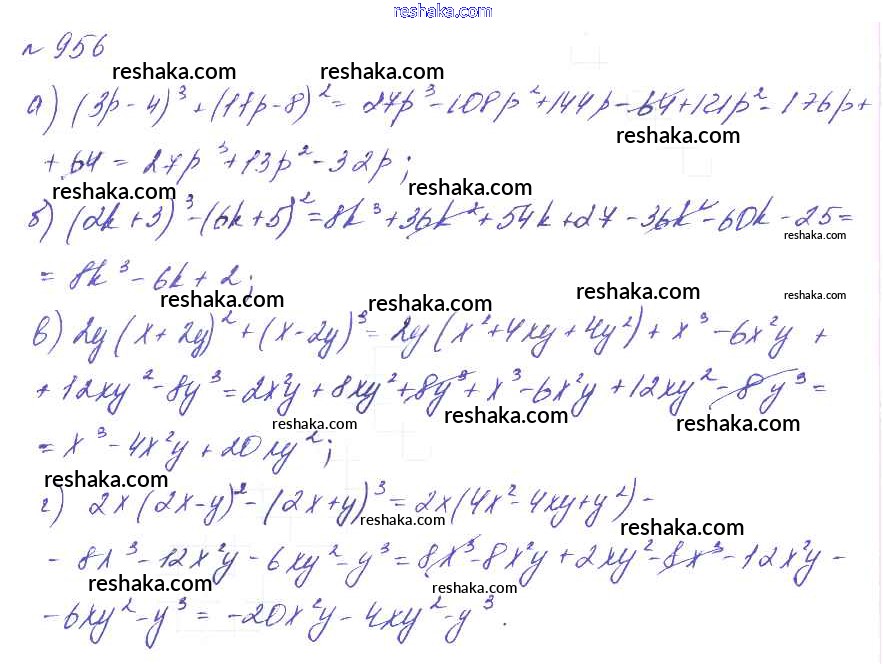 reshaka.com
№ 956
reshaka.com reshaka.com
а) (3p - 4)³ + (11p - 8)² = 27p³ - 108p² + 144p - 64 + 121p² - 176p +
reshaka.com
+ 64 = 27p³ + 13p² - 32p;
reshaka.com reshaka.com
б) (2k + 3)³ - (6k + 5)² = 8k³ + 36k² + 54k + 27 - 36k² - 60k - 25 =
reshaka.com
= 8k³ - 6k + 2;
reshaka.com reshaka.com reshaka.com reshaka.com
в) 2y (x + 2y)² + (x - 2y)³ = 2y (x² + 4xy + 4y²) + x³ - 6x²y +
+ 12xy² - 8y³ = 2x²y + 8xy² + 8y³ + x³ - 6x²y + 12xy² - 8y³ =
reshaka.com reshaka.com reshaka.com
= x³ - 4x²y + 20xy²;
reshaka.com
г) 2x (2x - y)² - (2x + y)³ = 2x (4x² - 4xy + y²) -
reshaka.com reshaka.com
- 8x³ - 12x²y - 6xy² - y³ = 8x³ - 8x²y + 2xy² - 8x³ - 12x²y -
reshaka.com reshaka.com
- 6xy² - y³ = -20x²y - 4xy² - y³.